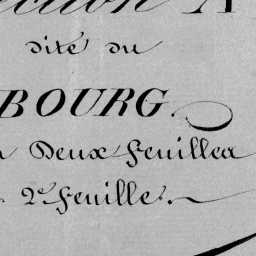 ection A
dite du
BOURG.
n Deux feuilles
2e feuille.